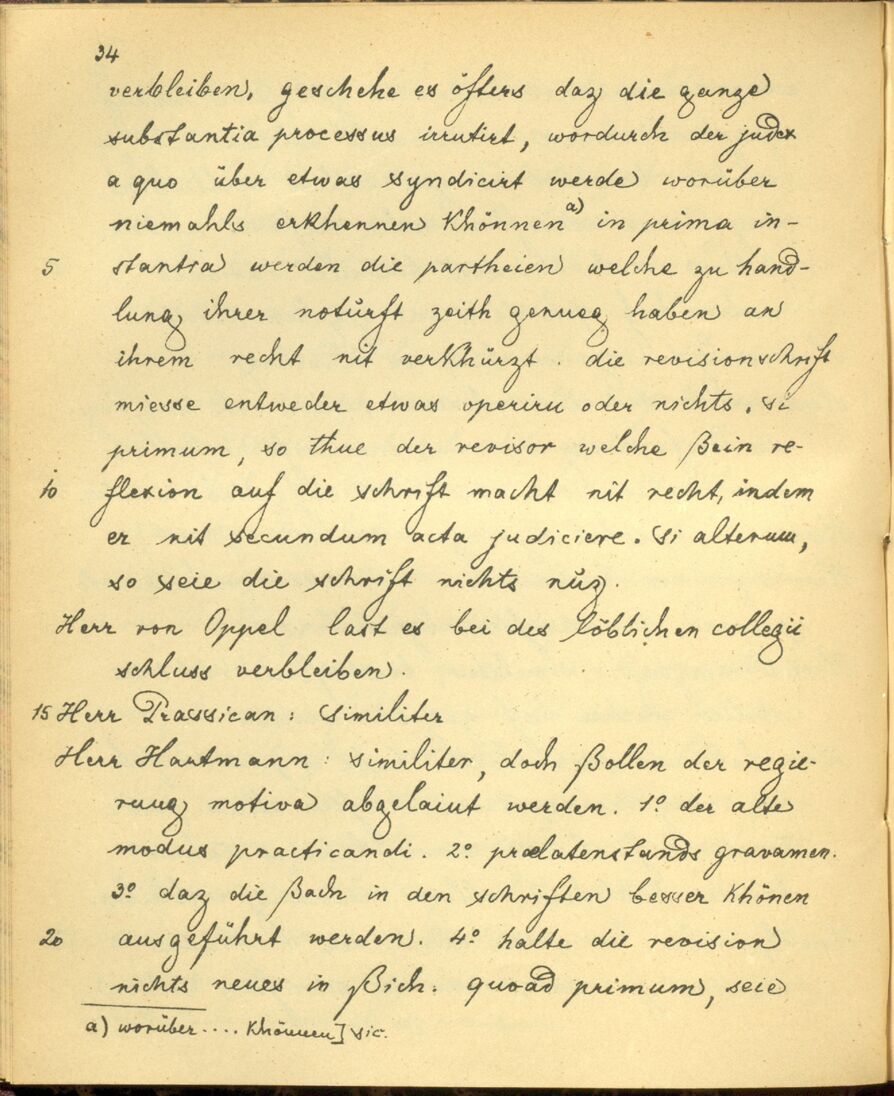 34
verbleiben, geschehe es öfters daz die ganze
substantia processus irrutirt, wordurch der judex
a quo über etwas syndicirt werde worüber
niemahls erkhennen khönnen a) in prima in-
5 stantia werden die partheien welche zu hand-
lung ihrer noturft zeith genueg haben an
ihrem recht nit verkhürzt. die revisionschrift
miesse entweder etwas operiru oder nichts. si
primum, so thue der revisor welche ßein re-
10 flexion auf die schrift macht nit recht, indem
er nit secundum acta judiciere. si alterum,
so seie die schrift nichts nüz.
Herr von Oppel last es bei des löblichen collegii
schluss verbleiben.
15 Herr Prassican: similiter
Herr Hartmann: similiter, doch ßollen der regie-
rung motiva abgelaint werden. 1º der alte
modus practicandi. 2º prælatenstands gravamen.
3º daz die ßach in den schriften besser khönen
20 ausgeführt werden. 4º halte die revision
nichts neues in ßich: quoad primum, seie
a) worüber .... khönnen] sic.